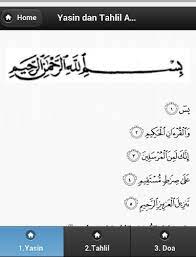 Home
Yasin dan Tahlil A...
بِسْمِ اللَّهِ الرَّحْمَٰنِ الرَّحِيمِ
يسٓ ١
وَٱلْقُرْءَانِ ٱلْحَكِيمِ ٢
إِنَّكَ لَمِنَ ٱلْمُرْسَلِينَ ٣
عَلَىٰ صِرَٰطٍ مُّسْتَقِيمٍ ٤
تَنزِيلَ ٱلْعَزِيزِ ٱلرَّحِيمِ ٥
1.Yasin
2.Tahlil
3. Doa